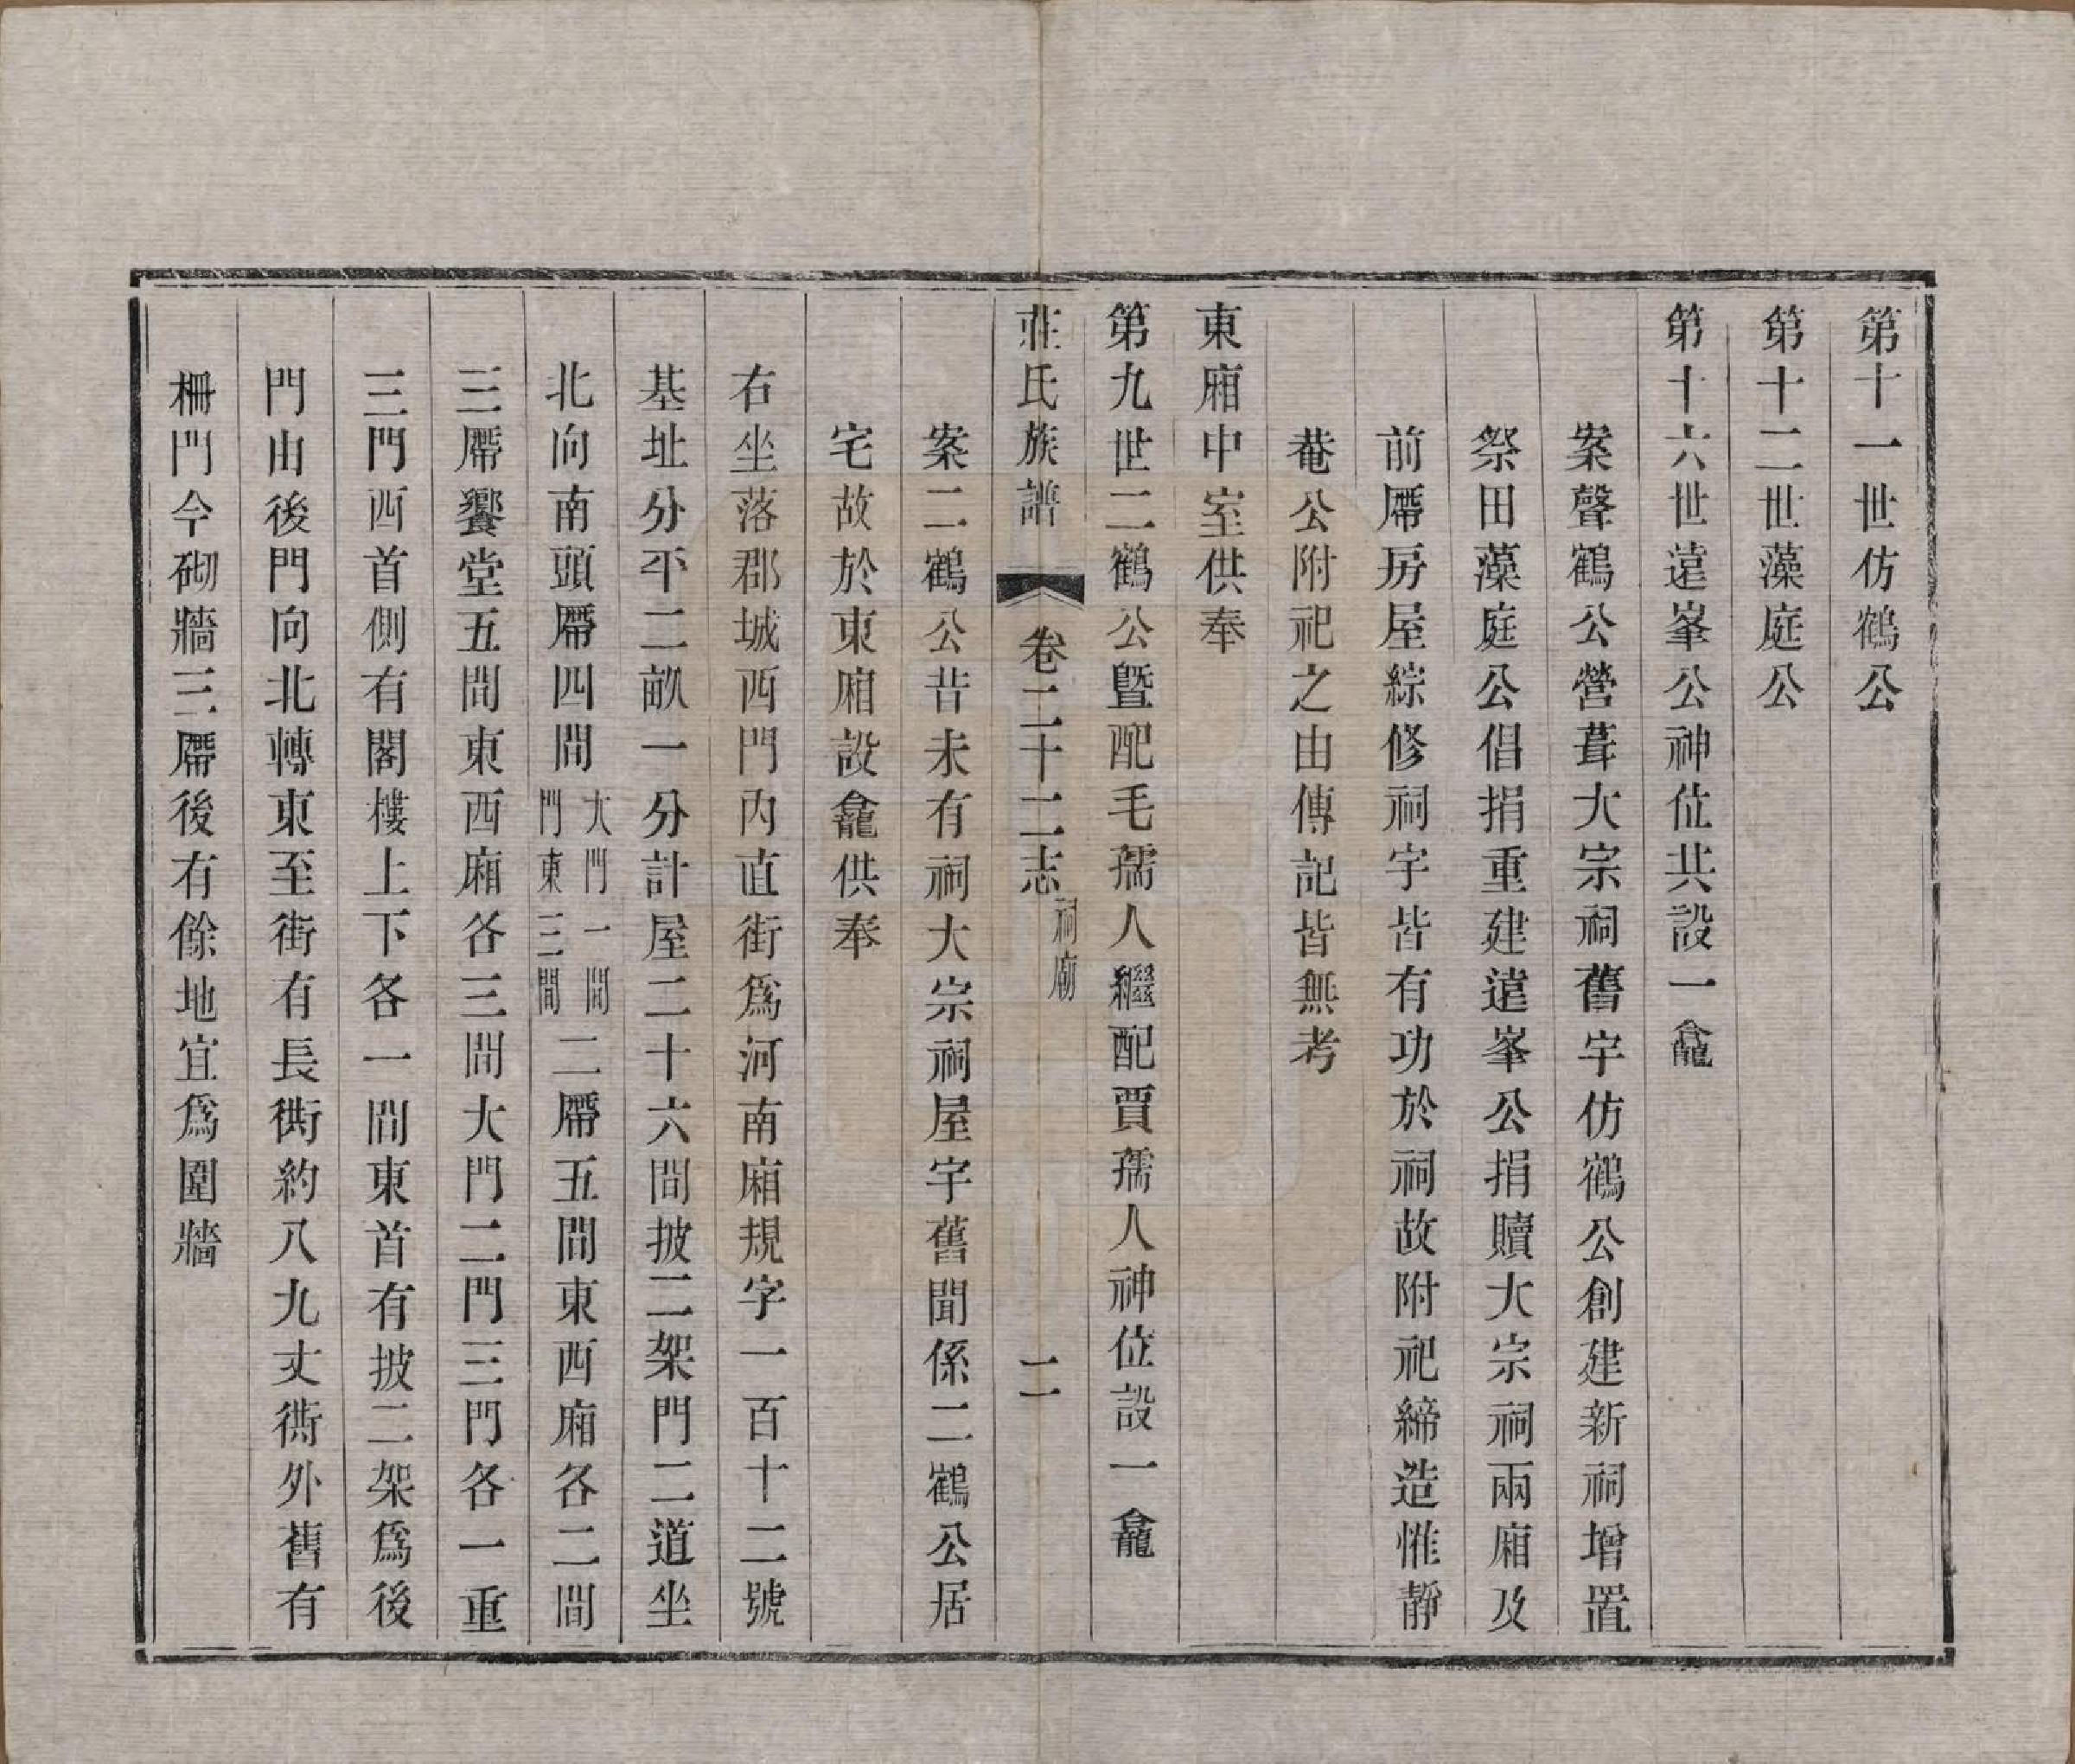 第十一世仿鶴公
第十二世藻庭公
第十六世遠峯公神位共設一龕
案聲鶴公營葺大宗祠舊宇仿鶴公創建新祠增置
祭田藻庭公倡捐重建遠峯公捐贖大宗祠兩廂及
前厲房屋綜修祠宇皆有功於祠故附祀締造惟靜
菴公附祀之由傳記皆無考
東廂中室供奉
第九世二鶴公暨配毛孺人繼配賈孺人神位設一龕
莊氏族譜 卷二十二志 祠廟 二
案二鶴公昔未有祠大宗祠屋宇舊聞係二鶴公居
宅故於東廂設龕供奉
右坐落郡城西門內直街爲河南廂規字一百十二號
基址分平二畝一分計屋二十六間披二架門二道坐
北向南頭厲四間 大門一間 門東三間 二厲五間東西廂各二間
三厲饗堂五間東西廂各三間大門二門三門各一重
三門西首側有閣樓上下各一間東首有披二架爲後
門由後門向北轉東至街有長衖約八九丈衖外舊有
柵門今砌牆三厲後有餘地宜爲圍牆